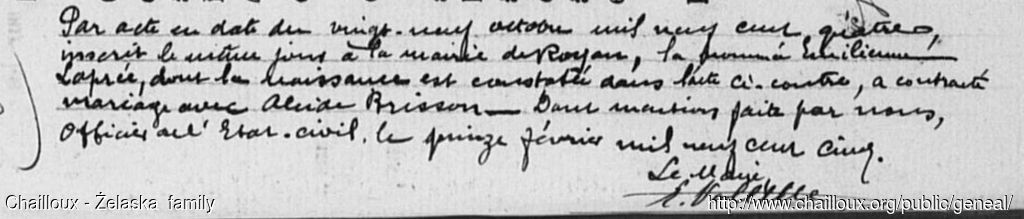 Par acte en date du vingt-neuf octobre mil neuf cent quatre,
inscrit le même jour à la mairie de Royan, la nommée Emilienne
Laprée, dont la naissance est constatée dans l'acte ci-contre, a contracté
mariage avec Alcide Brisson — Dont mention faite par nous,
Officier de l'Etat-civil, le quinze février mil neuf cent cinq.
Le Maire,
Chailloux - Żelaska family
http://www.chailloux.org/public/geneal/